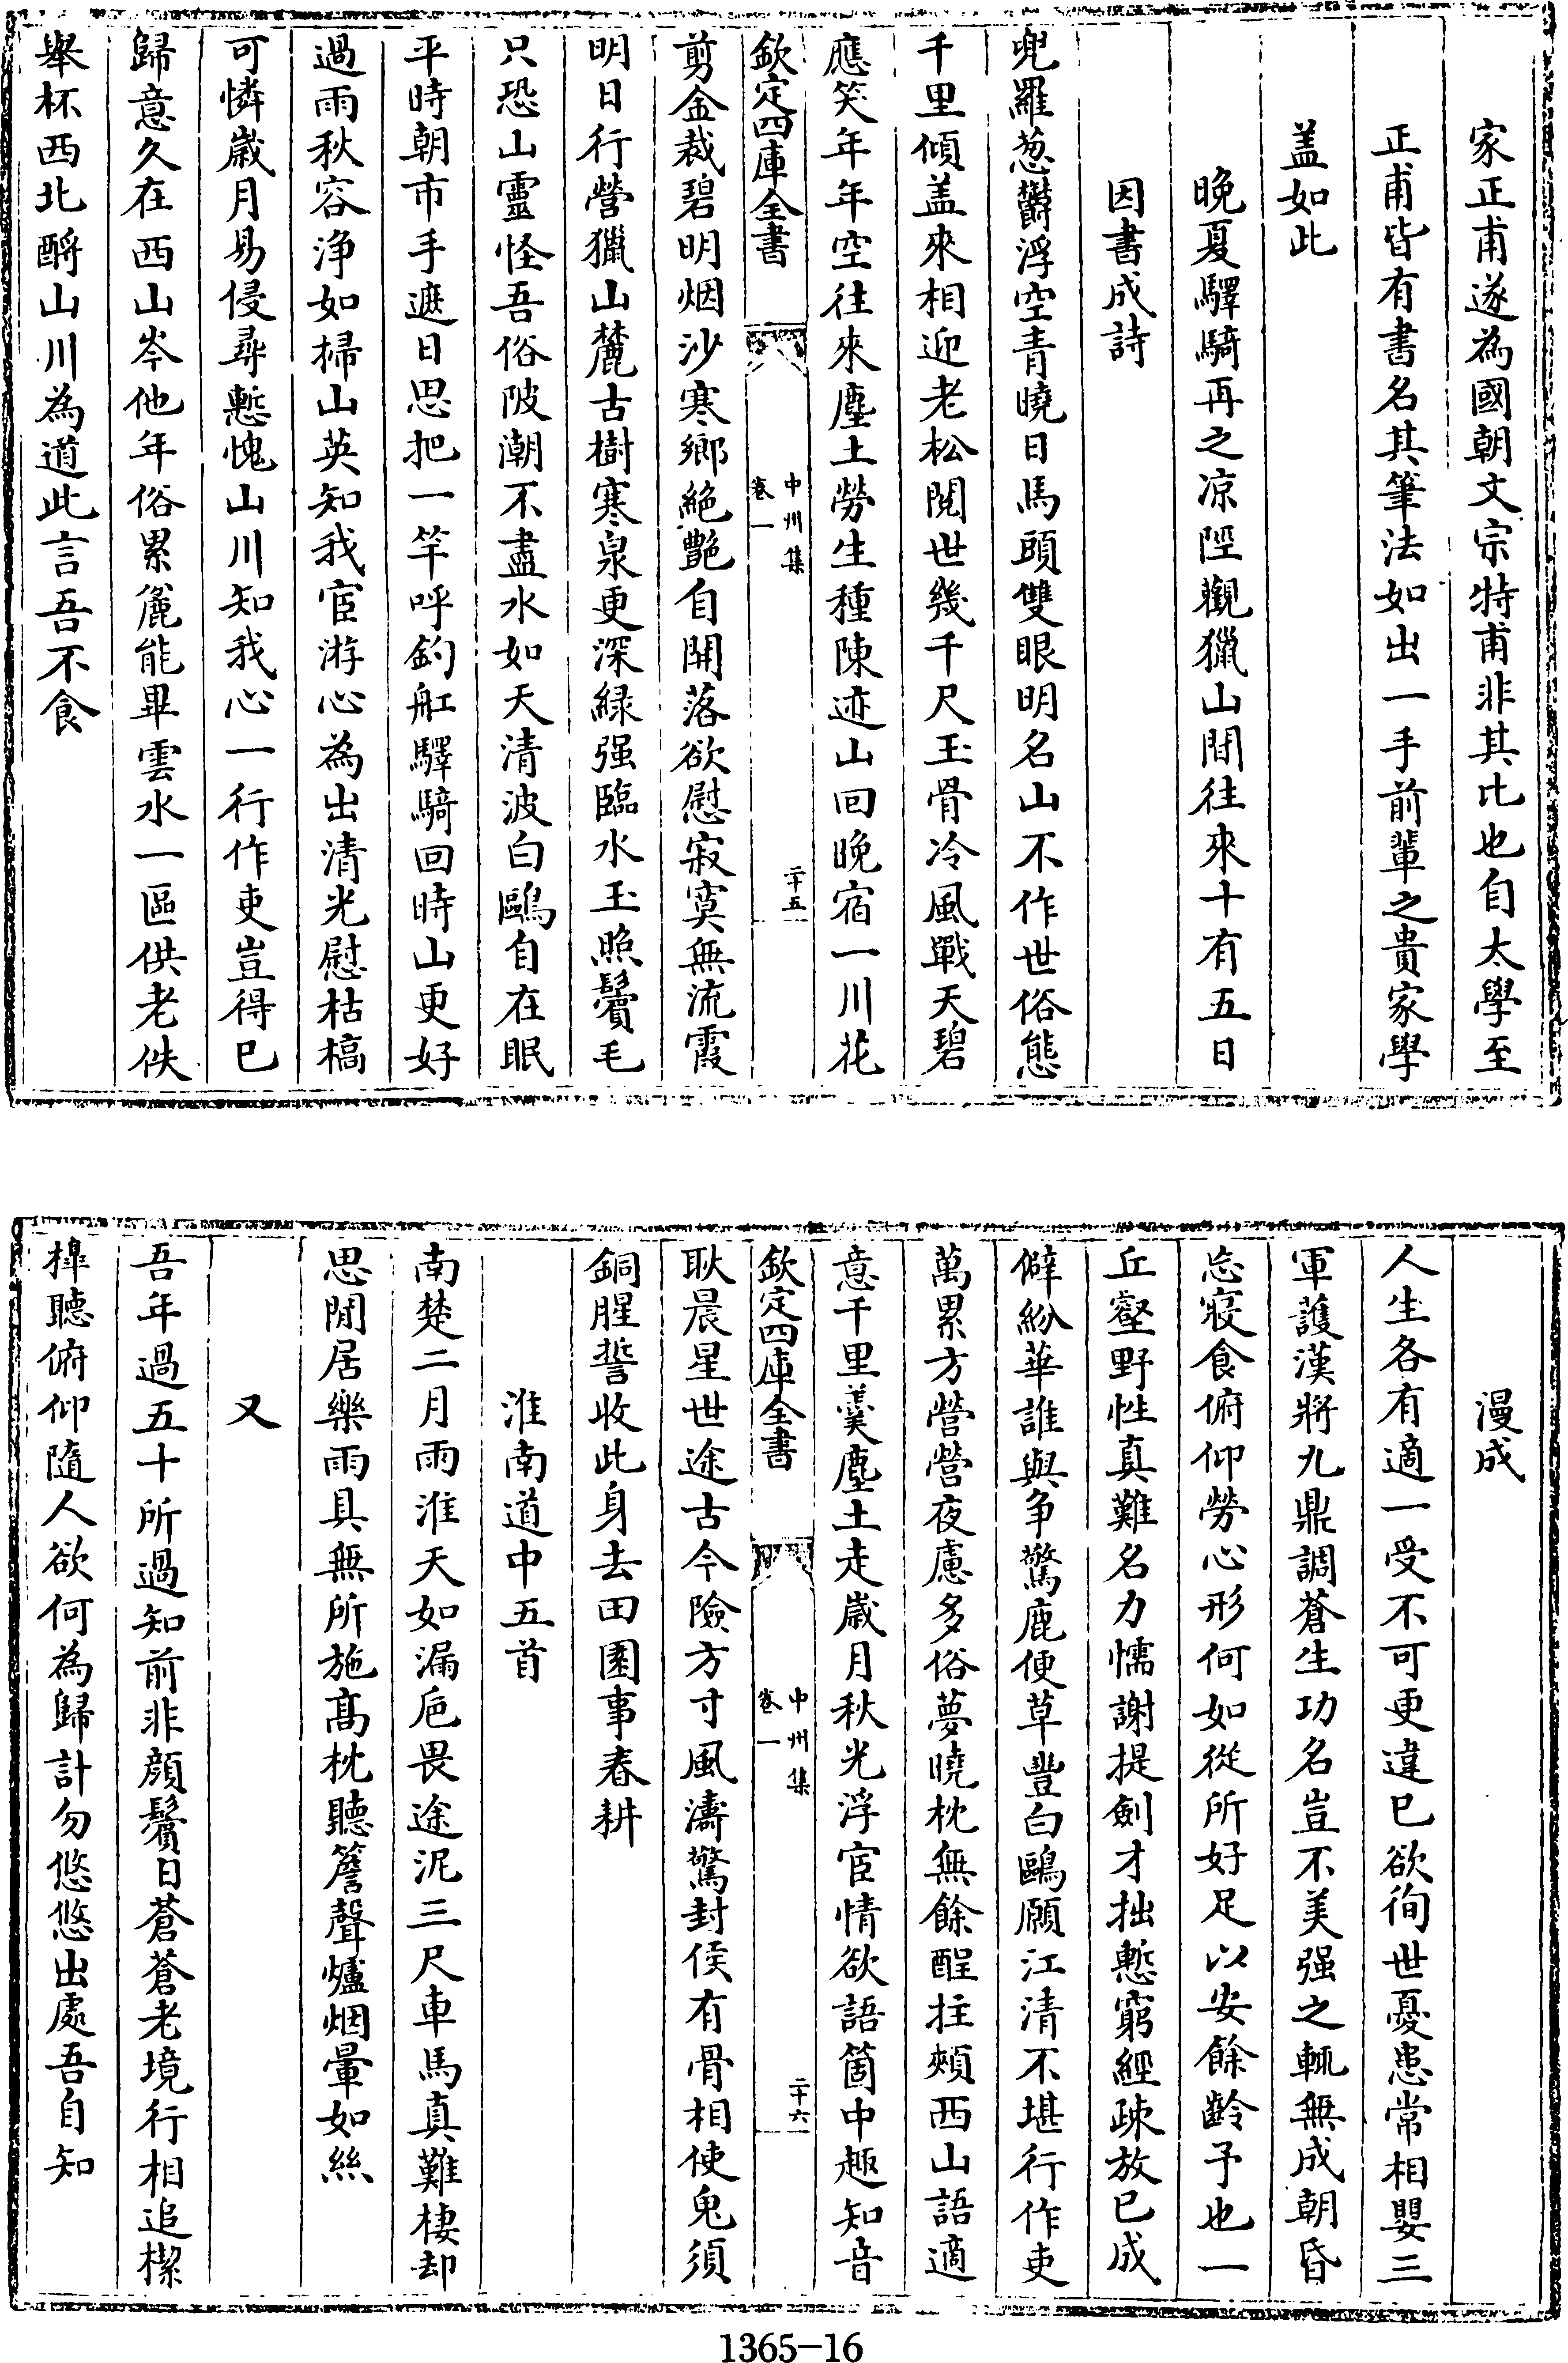 家正甫遂為國朝文宗特甫非其比也自太學至
正甫皆有書名其筆法如出一手前輩之貴家學
盖如此
晚夏驛騎再之凉陘觀獵山間往來十有五日
因書成詩
兜羅葱鬱浮空青曉日馬頭雙眼明名山不作世俗態
千里傾盖來相迎老松閱世幾千尺玉骨冷風戰天碧
應笑年年空往來塵土勞生種陳迹山回晚宿一川花
欽定四庫全書
中州集
卷一
二十五
剪金裁碧明烟沙寒鄉絶艷自開落欲慰寂寞無流霞
明日行營獵山麓古樹寒泉更深緑强臨水玉照鬢毛
只恐山靈怪吾俗陂潮不盡水如天清波白鷗自在眠
平時朝市手遮日思把一竿呼釣舡驛騎回時山更好
過雨秋容浄如掃山英知我宦游心為出清光慰枯槁
可憐歲月易侵尋慙愧山川知我心一行作吏豈得已
歸意久在西山岑他年俗累麄能畢雲水一區供老佚
舉杯西北酹山川為道此言吾不食
漫成
人生各有適一受不可更違已欲徇世憂患常相嬰三
軍護漢將九鼎調蒼生功名豈不美强之輒無成朝昏
忘寢食俯仰勞心形何如從所好足以安餘齡予也一
丘壑野性真難名力懦謝提劍才拙慙窮經疎放已成
僻紛華誰與争驚鹿便草豐白鷗願江清不堪行作吏
萬累方營營夜慮多俗夢曉枕無餘酲拄頰西山語適
意千里羹塵土走歲月秋光浮宦情欲語箇中趣知音
欽定四庫全書
中州集
卷一
二十六
耿晨星世途古今險方寸風濤驚封侯有骨相使鬼須
銅腥誓收此身去田園事春耕
淮南道中五首
南楚二月雨淮天如漏巵畏途泥三尺車馬真難棲却
思閒居樂雨具無所施髙枕聽簷聲爐烟暈如絲
又
吾年過五十所過知前非顔鬢日蒼蒼老境行相追㮮
槔聽俯仰隨人欲何為歸計勿悠悠出處吾自知
1365-16